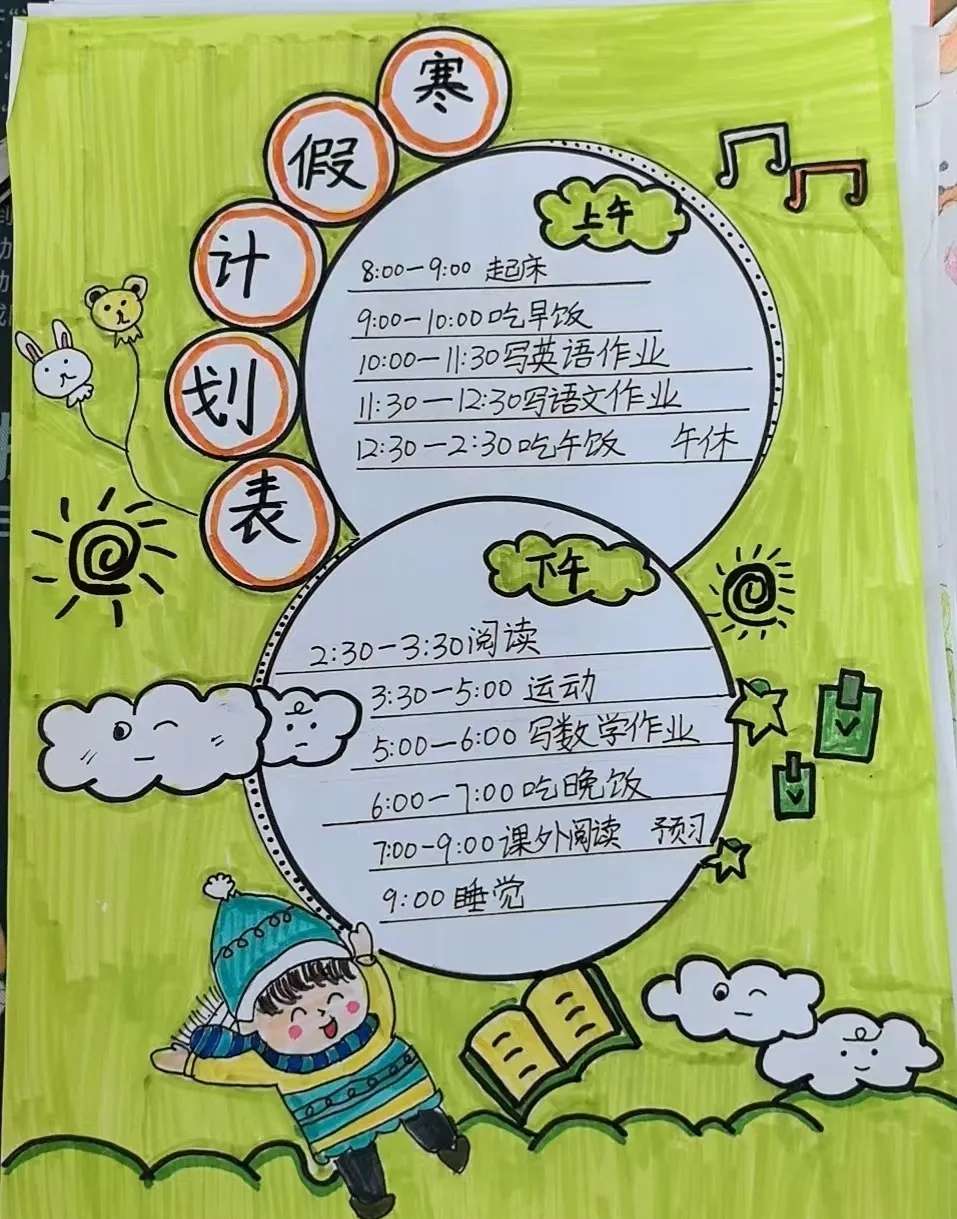 寒假计划表
上午
8:00-9:00 起床
9:00-10:00吃早饭
10:00-11:30写英语作业
11:30-12:30写语文作业
12:30-2:30吃午饭 午休
下午
2:30-3:30阅读
3:30-5:00 运动
5:00-6:00 写数学作业
6:00-7:00吃晚饭
7:00-9:00课外阅读 预习
9:00睡觉